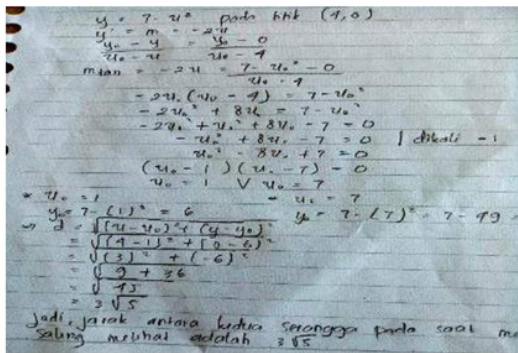 y = 7 - x² pada titik (4,0)
y' = m = -2x
y₀ - y / x₀ - x = y₀ - 0 / x₀ - 4
m tan = -2x = 7 - x₀² - 0 / x₀ - 4
-2x₀ (x₀ - 4) = 7 - x₀²
-2x₀² + 8x₀ = 7 - x₀²
-2x₀² + x₀² + 8x₀ - 7 = 0
-x₀² + 8x₀ - 7 = 0 | dikali -1
x₀² - 8x₀ + 7 = 0
(x₀ - 1)(x₀ - 7) = 0
x₀ = 1 V x₀ = 7
* x₀ = 1 - x₀ = 7
y₀ = 7 - (1)² = 6 y₀ = 7 - (7)² = 7 - 49 =
⇒ d = √(x - x₀)² + (y - y₀)²
= √(4 - 1)² + (0 - 6)²
= √(3)² + (-6)²
= √9 + 36
= √45
= 3√5
Jadi, jarak antara kedua serangga pada saat
saling melihat adalah 3√5